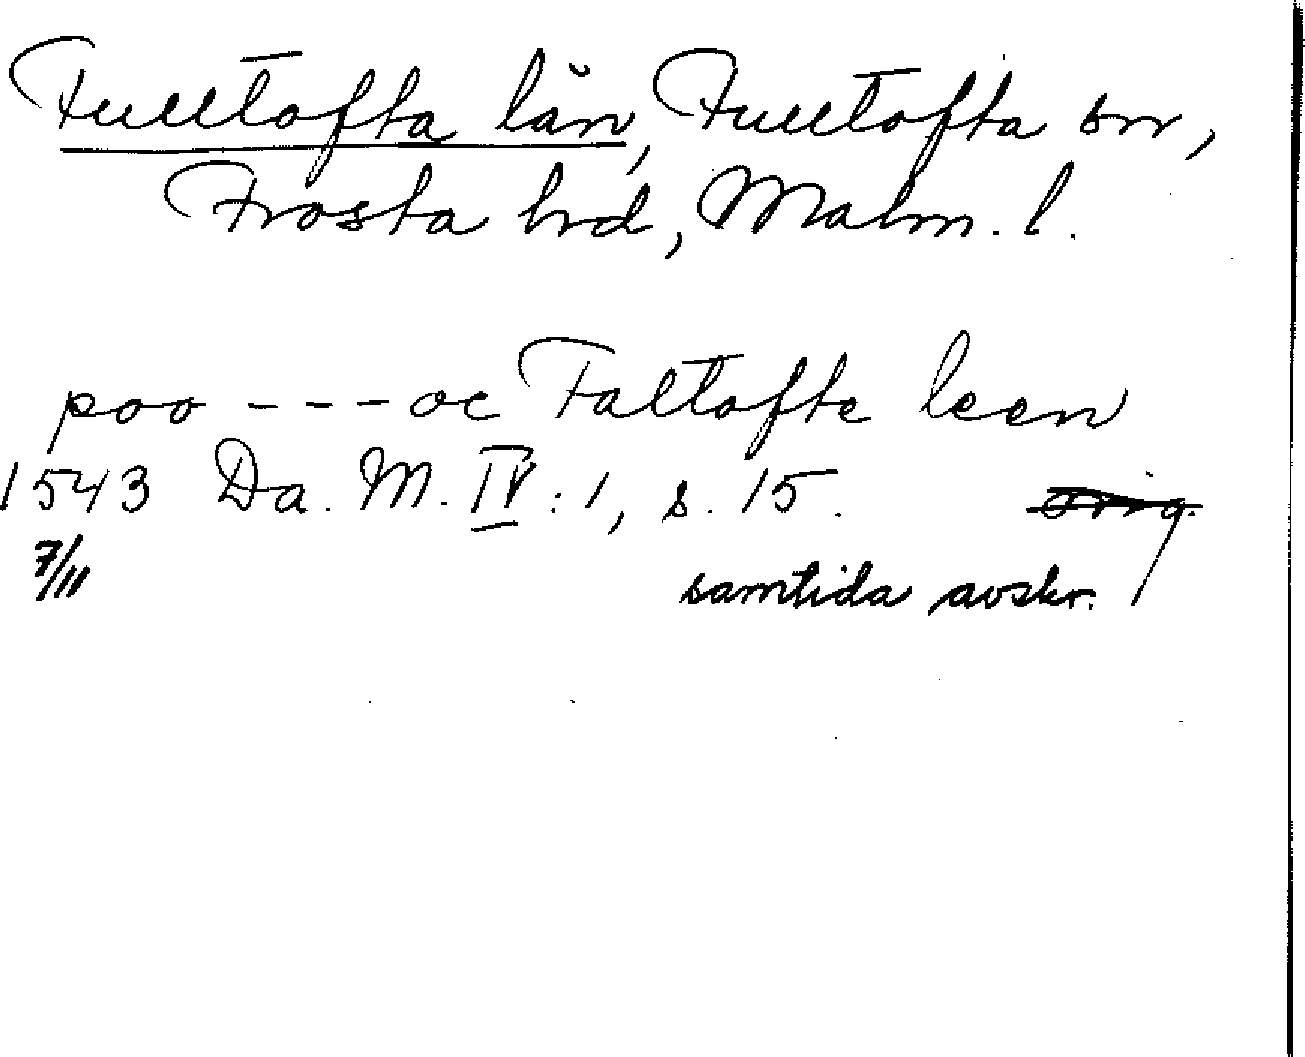 Fulltofta län, Fulltofta sn,
Frosta hrd, Malm. l.
poo - - - oc Faltofte leen
1543 Da. M. IV : 1, s. 15. orig.
7/11 samtida avskr.